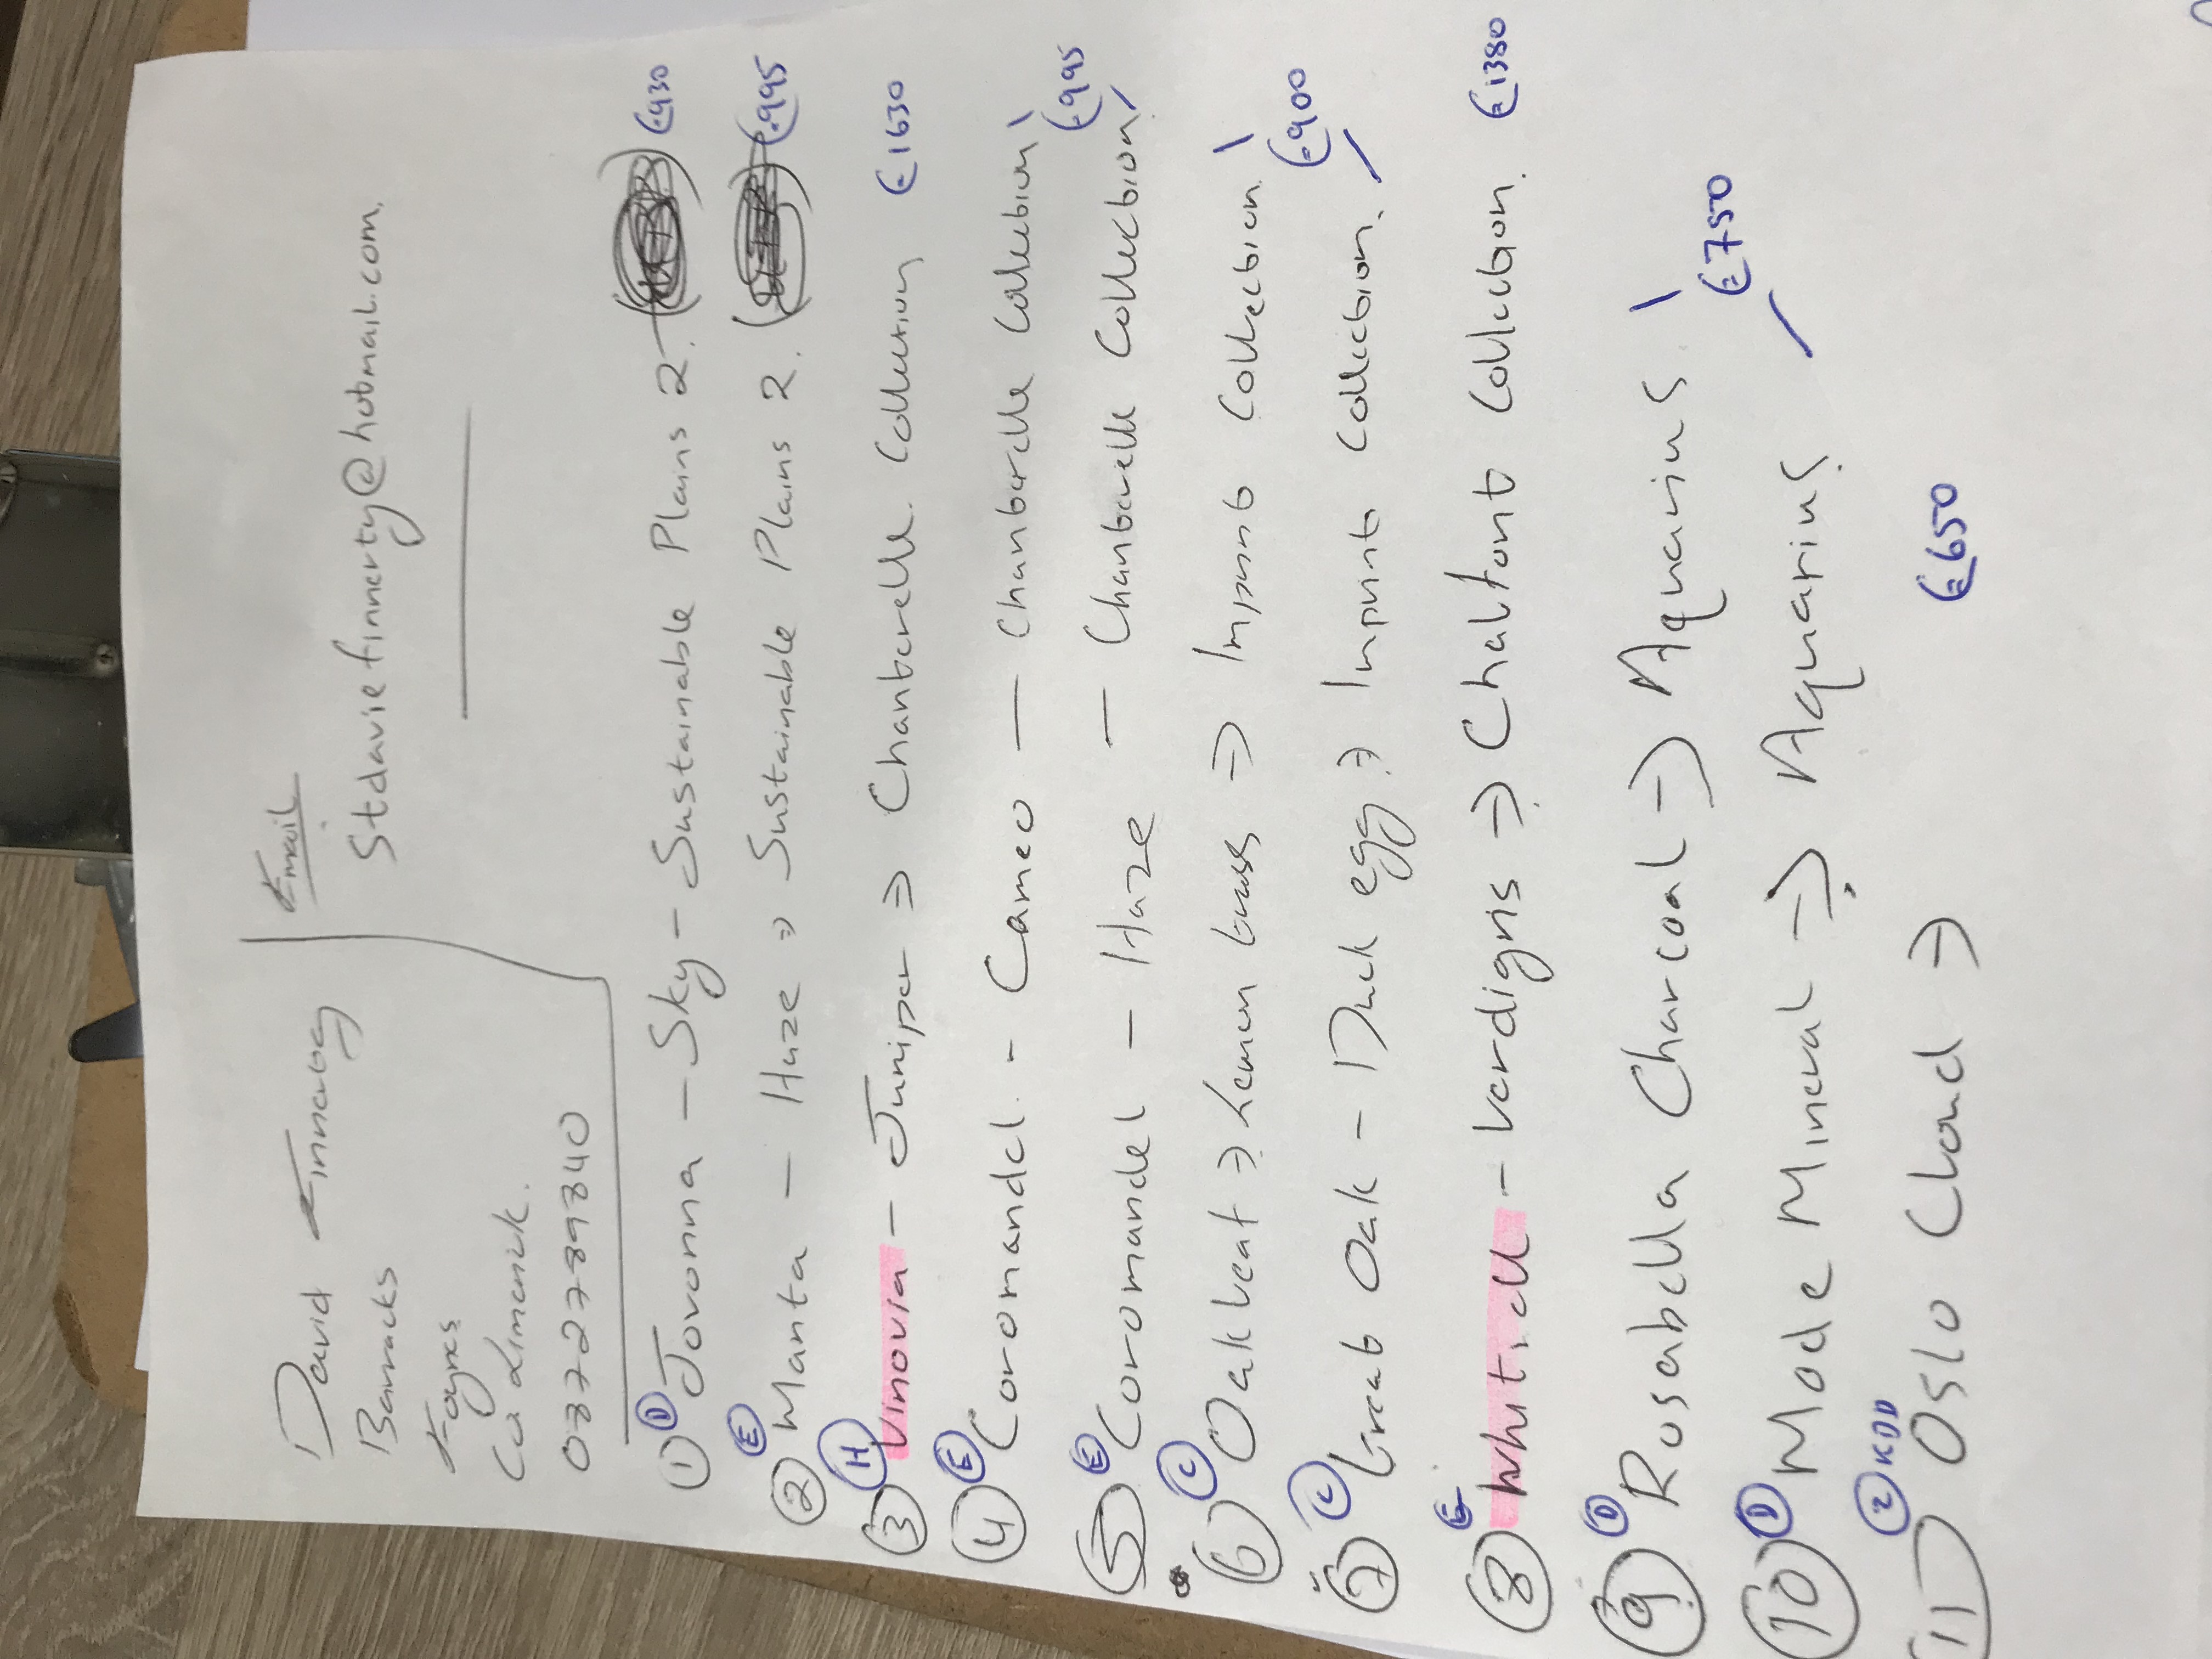 David Finnerty
Email
Barracks
Stdaviefinnerty@hotmail.com.
Foynes
Co Limerick.
0872789840
① D Jovonna - Sky - Sustainable Plains 2. €930
② E Manta - Haze => Sustainable Plains 2. €995
③ H Vinovia - Juniper => Chanterelle Collection €1630
④ E Coromandel - Cameo - Chanterelle Collection
€995
⑤ E Coromandel - Haze - Chanterelle Collection
⑥ C Oakleaf => Lemon Grass => Imprint Collection
€900
⑦ C Great Oak - Duck egg => Imprint Collection.
⑧ Whitwell - Verdigris => Chalfont Collection. €1380
⑨ D Rosabella Charcoal => Aquarius
€750
⑩ D Mode Mineral => Aquarius
⑪ ② KDD Oslo Cloud => €650